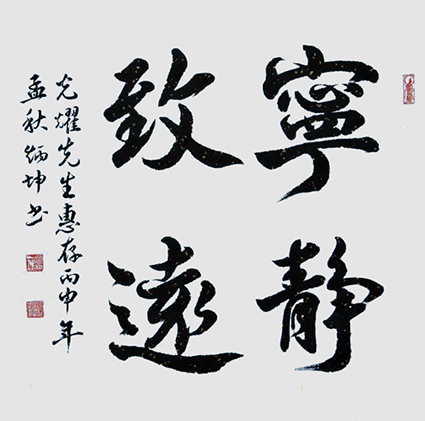 寧静
致遠
光耀先生惠存丙申年
孟秋炳坤书